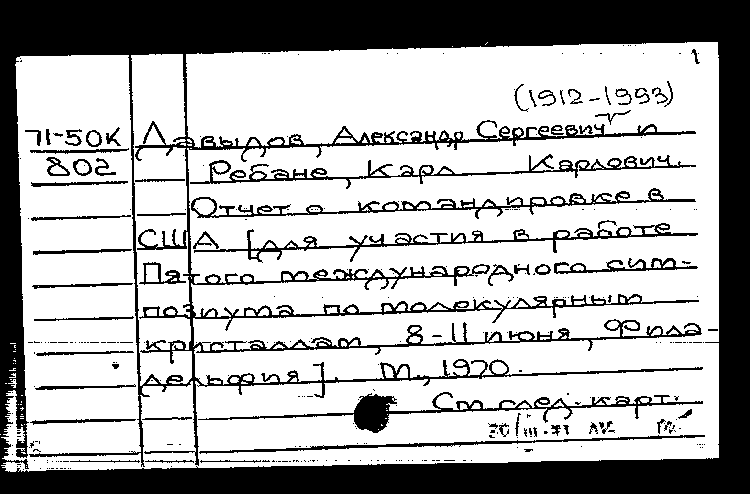 1
(1912-1993)
71-50К Давыдов, Александр Сергеевич и
802 Ребане, Карл Карлович.
Отчет о командировке в
США [для участия в работе
Пятого международного сим-
позиума по молекулярным
кристаллам, 8-11 июня, Фила-
дельфия]. М., 1970.
См. след. карт.
20/III-71